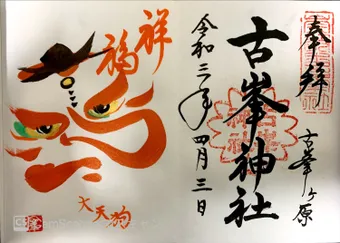 奉拝
古峯ヶ原
古峯神社
令和三年四月三日
祥福
大天狗